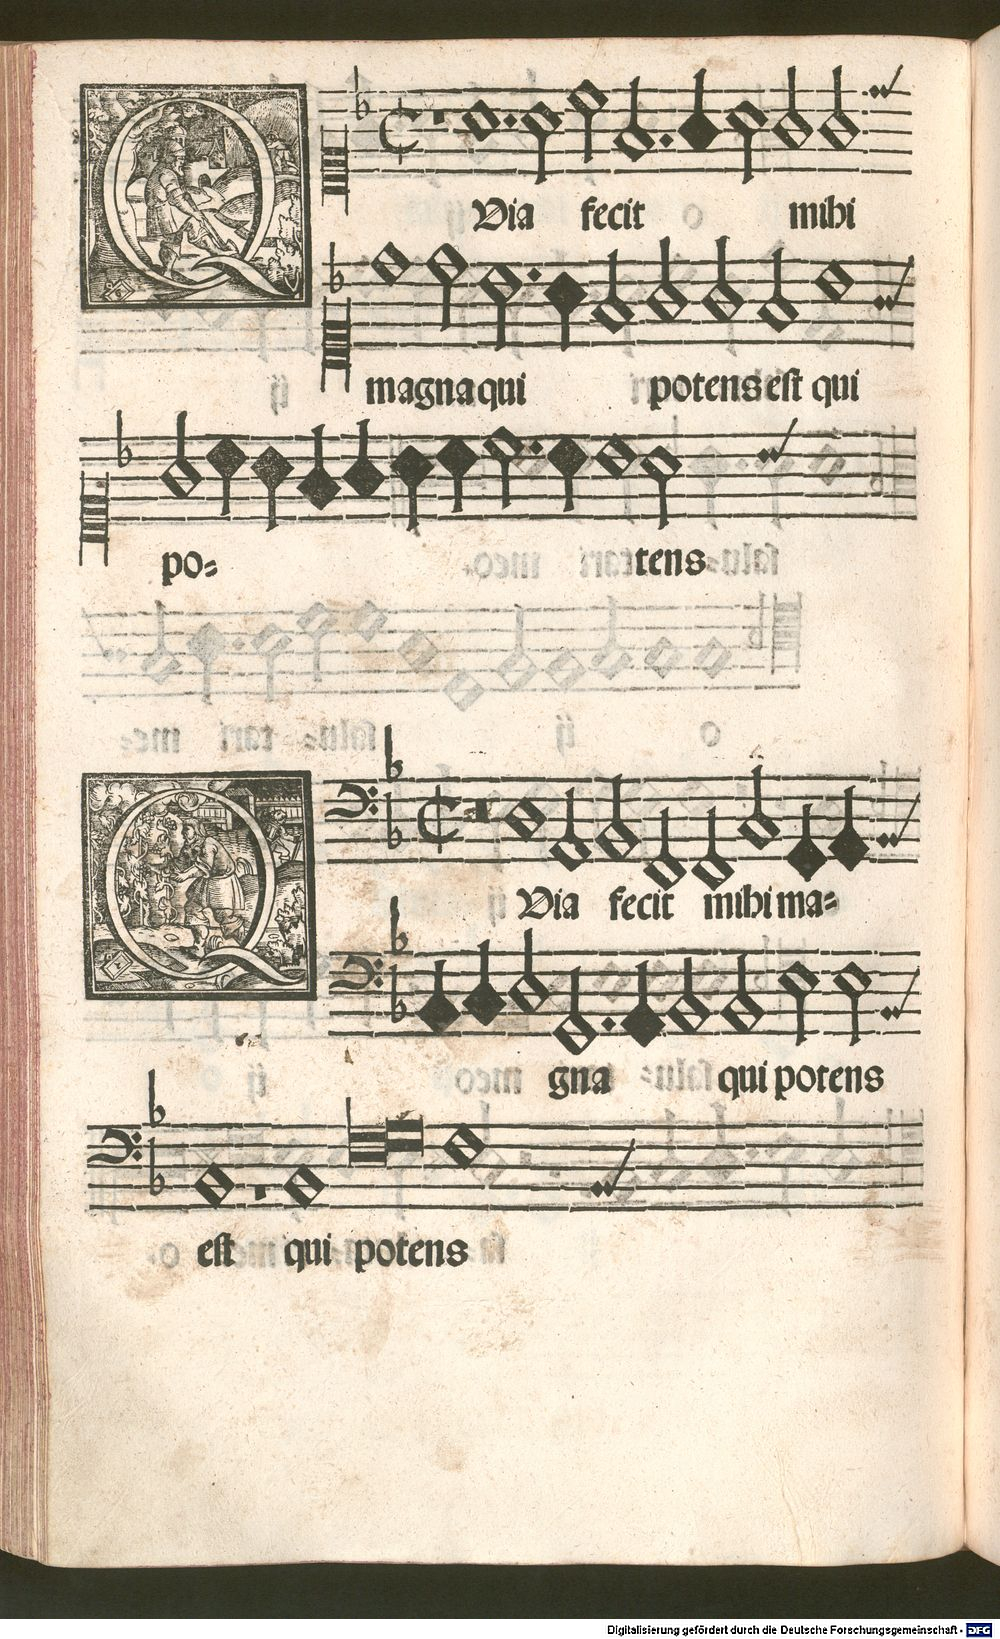 QVia fecit mihi
magna qui potens est qui
po= tens
QVia fecit mihi ma=
gna qui potens
est qui potens
Digitalisierung gefördert durch die Deutsche Forschungsgemeinschaft - DFG